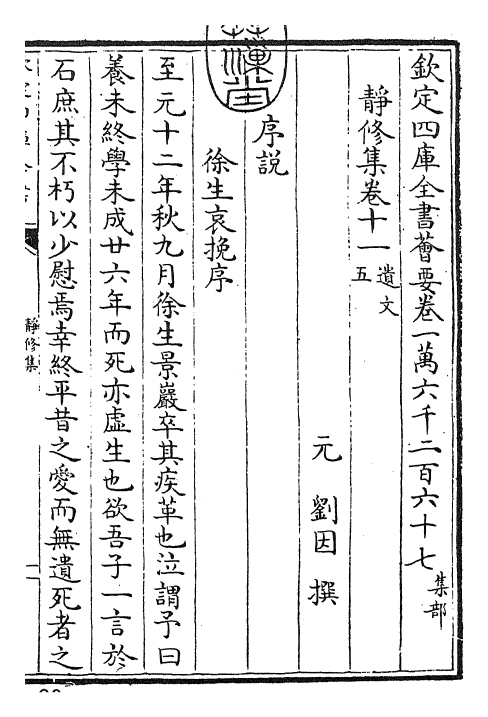 欽定四庫全書薈要卷一萬六千二百六十七 集部
靜修集卷十一 遺文五
元 劉因 撰
序說
徐生哀挽序
至元十二年秋九月徐生景巖卒其疾革也泣謂予曰
養未終學未成廿六年而死亦虛生也欲吾子一言於
石庶其不朽以少慰焉幸終平昔之愛而無遺死者之
靜修集
一